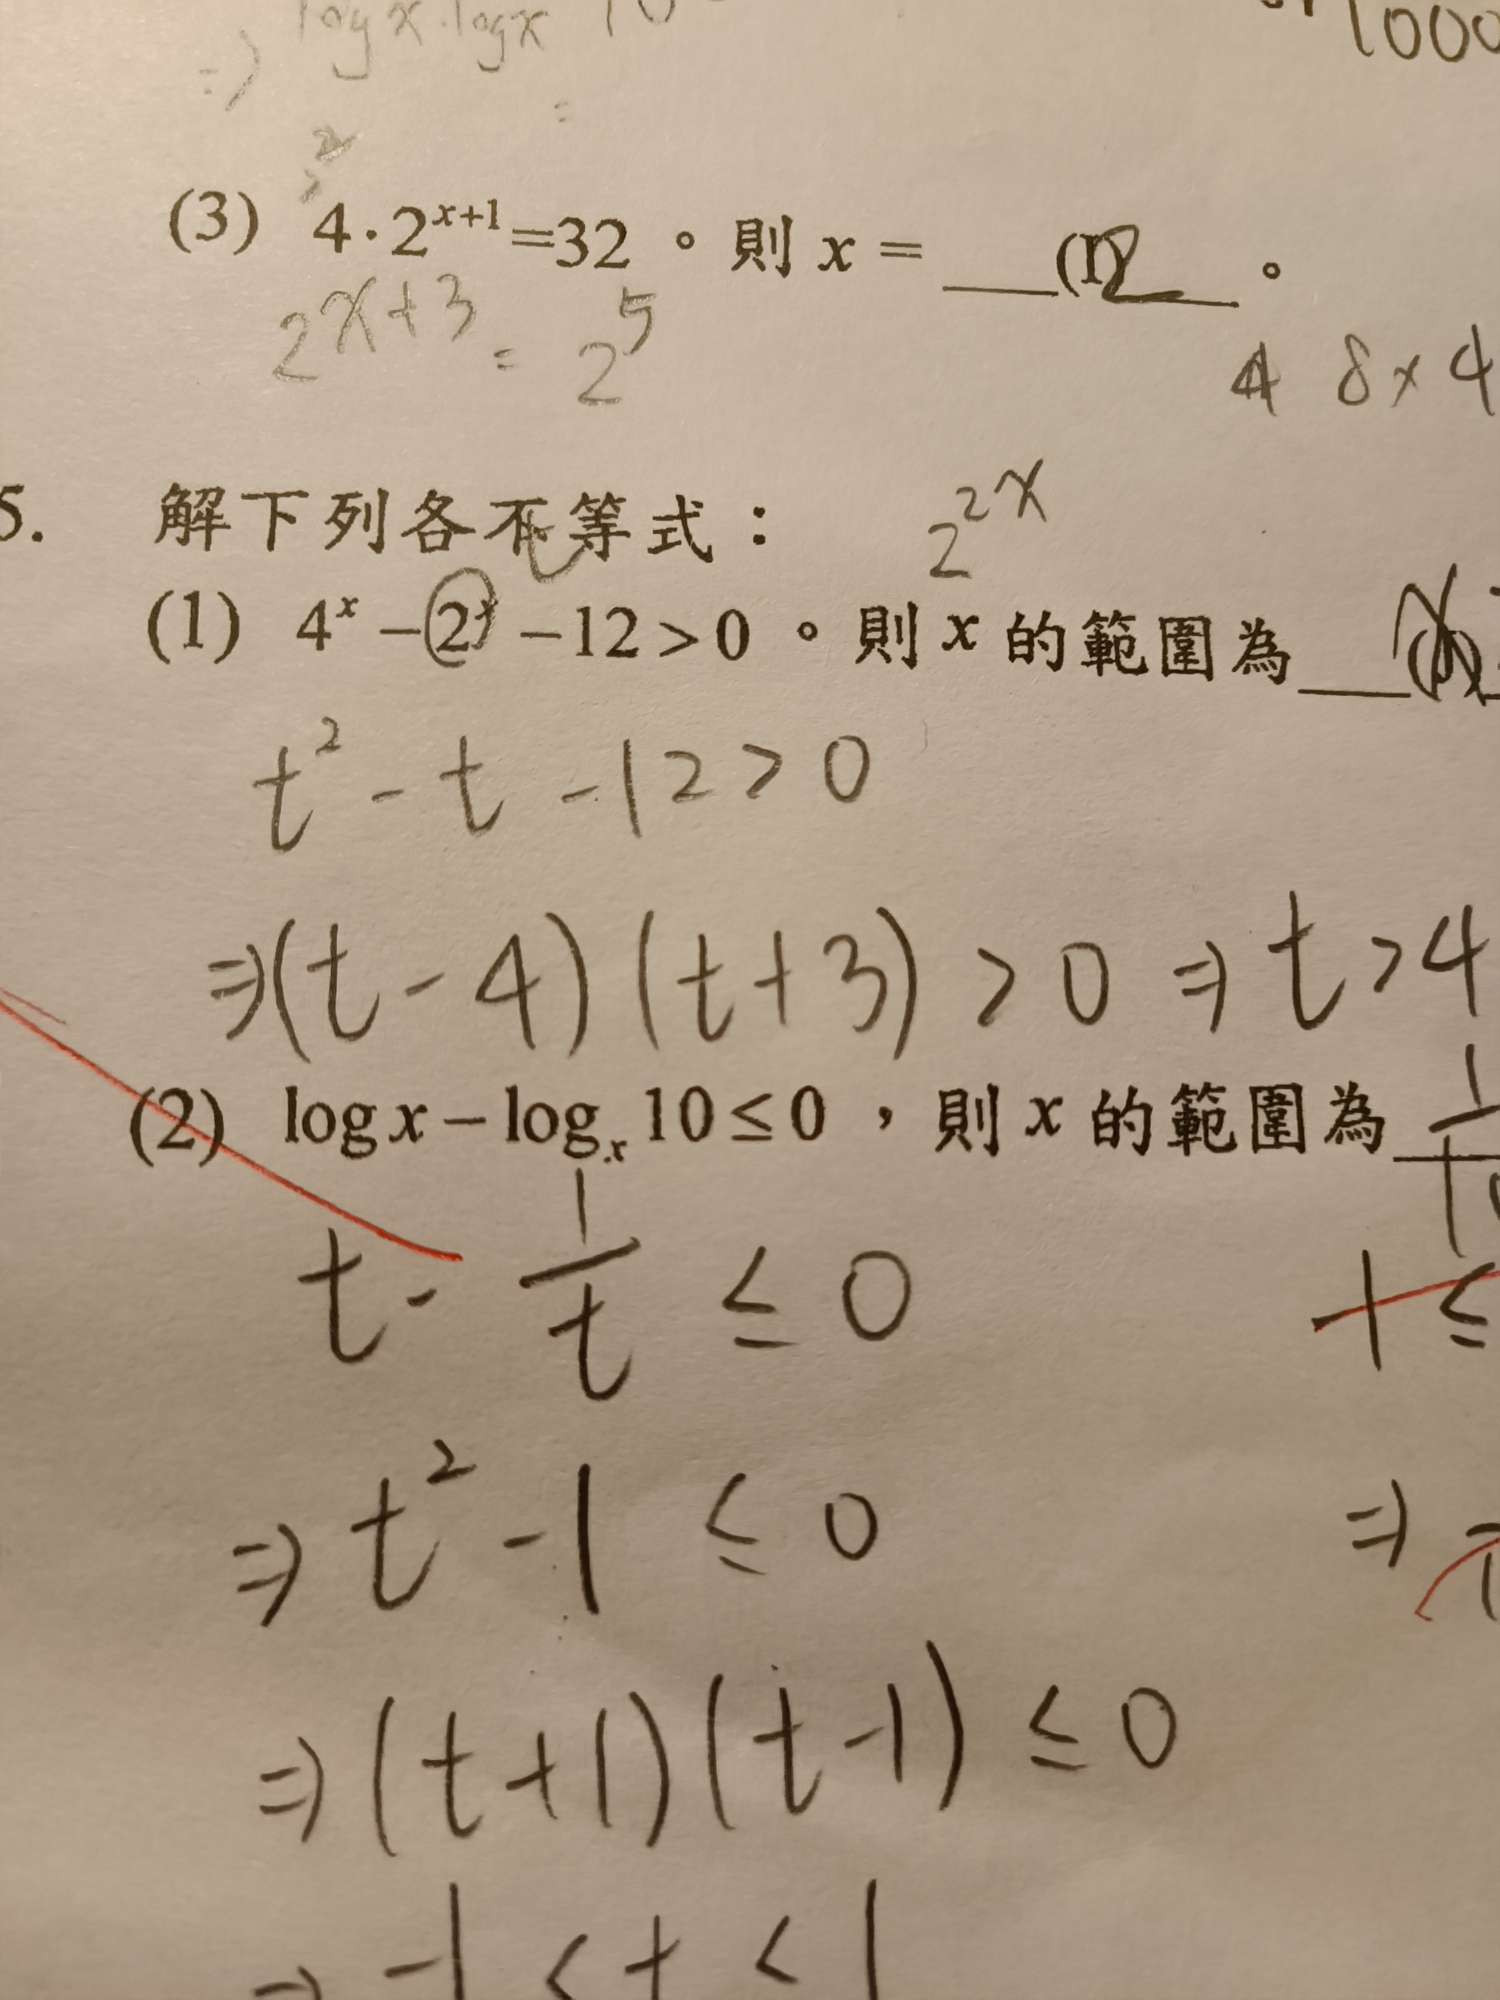 ⇒ log x · log x 10
=
1000
2
(3) 4·2^{x+1}=32 。則 x = ___(1)2___ 。
2^{x+3} = 2^5
4 8×4
5. 解下列各不等式：
2^{2x}
t
(1) 4^x −2^x −12>0 。則 x 的範圍為
t² - t - 12 > 0
⇒ (t - 4) (t + 3) > 0 ⇒ t > 4
(2) log x − log_x 10 ≤ 0 ，則 x 的範圍為 1/10
t - 1/t ≤ 0
-1 ≤
⇒ t² - 1 ≤ 0 ⇒
⇒ (t + 1) (t - 1) ≤ 0
⇒ -1 < t < 1